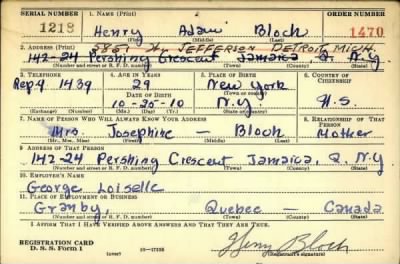 SERIAL NUMBER 1. NAME (Print) ORDER NUMBER
1218 Henry Adam Bloch 1470
(First) (Middle) (Last)
2. ADDRESS (Print) 5857 JEFFERSON DETROIT, MICH.
142-24 Pershing Crescent Jamaica, Q. N.Y.
(Number and street or R. F. D. number) (Town) (County) (State)
3. TELEPHONE 4. AGE IN YEARS 5. PLACE OF BIRTH 6. COUNTRY OF CITIZENSHIP
Rep 9 1439 29 New York
DATE OF BIRTH (Town or county)
10-25-10 N.Y U.S.
(Exchange) (Number) (Mo.) (Day) (Yr.) (State or country)
7. NAME OF PERSON WHO WILL ALWAYS KNOW YOUR ADDRESS 8. RELATIONSHIP OF THAT PERSON
Mrs. Josephine — Bloch Mother
(Mr., Mrs., Miss) (First) (Middle) (Last)
9. ADDRESS OF THAT PERSON
142-24 Pershing Crescent Jamaica, Q. N.Y
(Number and street or R. F. D. number) (Town) (County) (State)
10. EMPLOYER'S NAME
George Loiselle
11. PLACE OF EMPLOYMENT OR BUSINESS
Granby, Quebec — Canada
(Number and street or R. F. D. number) (Town) (County) (State)
I AFFIRM THAT I HAVE VERIFIED ABOVE ANSWERS AND THAT THEY ARE TRUE.
REGISTRATION CARD
D. S. S. Form 1 (over) 16—17105 Henry Bloch
(Registrant's signature)